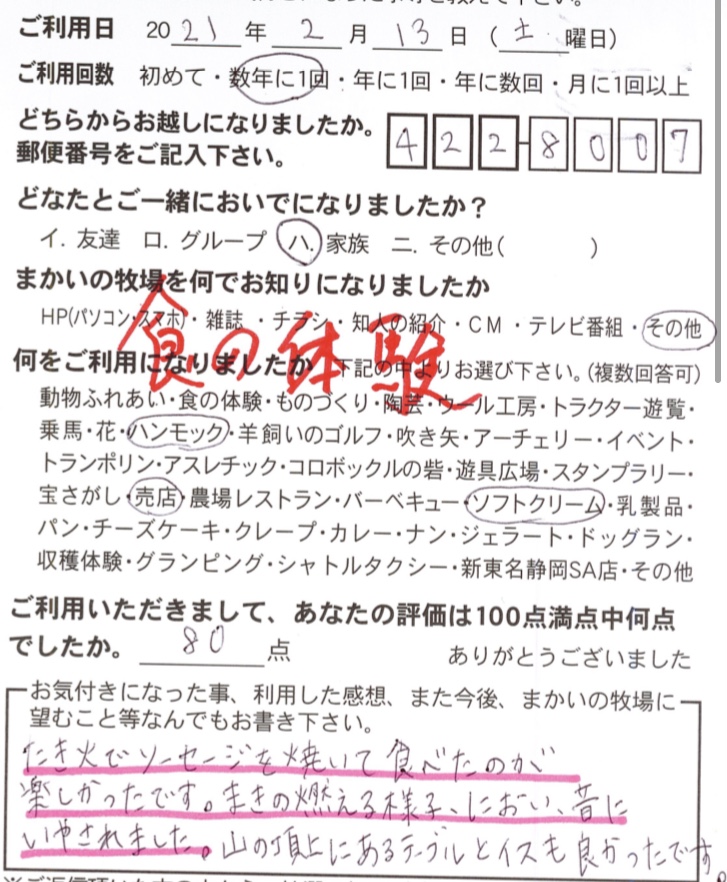 ご利用日 2021年 2月 13日 (土曜日)
ご利用回数 初めて・数年に1回・年に1回・年に数回・月に1回以上
どちらからお越しになりましたか。
郵便番号をご記入下さい。 422-8007
どなたとご一緒においでになりましたか?
イ. 友達 ロ. グループ ハ. 家族 ニ. その他( )
まかいの牧場を何でお知りになりましたか
HP(パソコン・スマホ)・雑誌・チラシ・知人の紹介・CM・テレビ番組・その他
食の体験
何をご利用になりましたか 下記の中よりお選び下さい。(複数回答可)
動物ふれあい・食の体験・ものづくり・陶芸・ウール工房・トラクター遊覧・
乗馬・花・ハンモック・羊飼いのゴルフ・吹き矢・アーチェリー・イベント・
トランポリン・アスレチック・コロボックルの砦・遊具広場・スタンプラリー・
宝さがし・売店・農場レストラン・バーベキュー・ソフトクリーム・乳製品・
パン・チーズケーキ・クレープ・カレー・ナン・ジェラート・ドッグラン・
収穫体験・グランピング・シャトルタクシー・新東名静岡SA店・その他
ご利用いただきまして、あなたの評価は100点満点中何点
でしたか。 80点 ありがとうございました
お気付きになった事、利用した感想、また今後、まかいの牧場に
望むこと等なんでもお書き下さい。
たき火でソーセージを焼いて食べたのが
楽しかったです。まきの燃える様子、におい、音に
いやされました。山の頂上にあるテーブルとイスも良かったです。